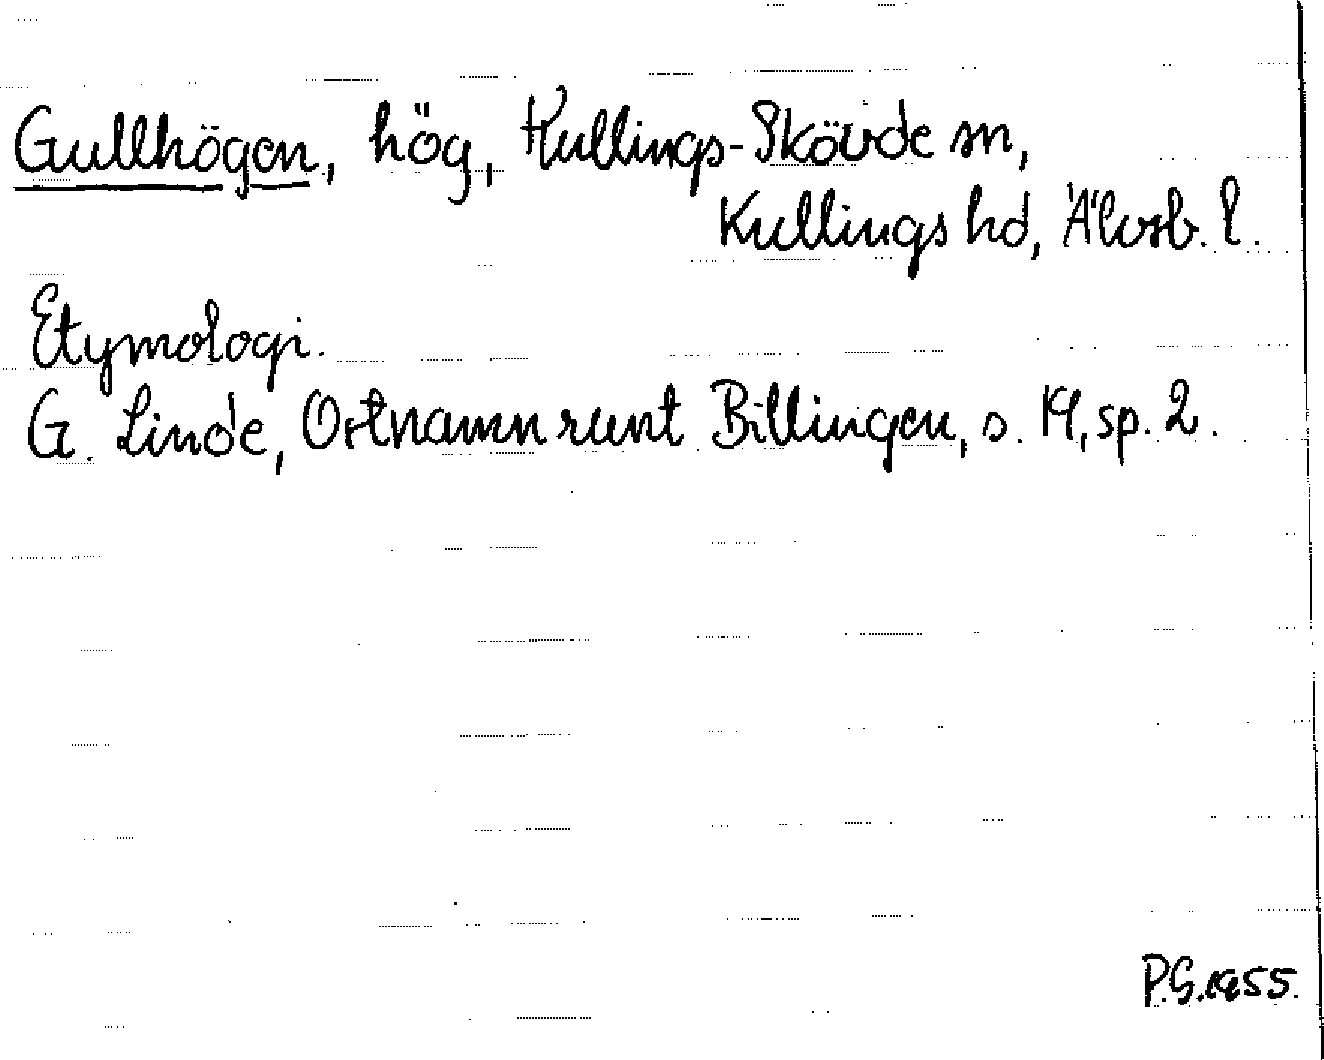 Gullhögen, hög, Kullings-Skövde sn,
Kullings hd, Älvsb. l.
Etymologi.
G. Linde, Ortnamn runt Billingen, s. 19, sp. 2.
P.G. 1955.